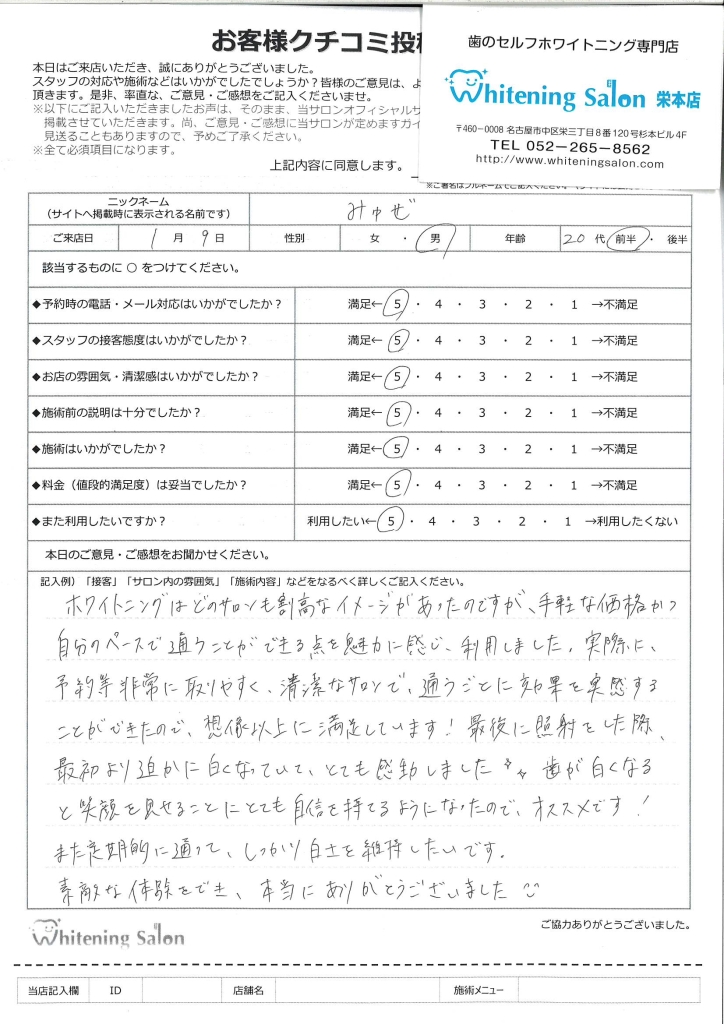 お客様クチコミ投稿
本日はご来店いただき、誠にありがとうございました。
スタッフの対応や施術などはいかがでしたでしょうか？皆様のご意見は、よ
頂きます。是非、率直な、ご意見・ご感想をご記入くださいませ。
※以下にご記入いただきましたお声は、そのまま、当サロンオフィシャルサ
掲載させていただきます。尚、ご意見・ご感想に当サロンが定めますガイ
見送ることもありますので、予めご了承ください。
※全て必須項目になります。
上記内容に同意します。
歯のセルフホワイトニング専門店
Whitening Salon 栄本店
〒460-0008 名古屋市中区栄三丁目8番120号杉本ビル4F
TEL 052-265-8562
http://www.whiteningsalon.com
ニックネーム
（サイトへ掲載時に表示される名前です）
みゅぜ
ご来店日 1月 9日 性別 女 ・ 男 年齢 20代 前半・ 後半
該当するものに ○ をつけてください。
◆予約時の電話・メール対応はいかがでしたか？ 満足← 5 ・ 4 ・ 3 ・ 2 ・ 1 →不満足
◆スタッフの接客態度はいかがでしたか？ 満足← 5 ・ 4 ・ 3 ・ 2 ・ 1 →不満足
◆お店の雰囲気・清潔感はいかがでしたか？ 満足← 5 ・ 4 ・ 3 ・ 2 ・ 1 →不満足
◆施術前の説明は十分でしたか？ 満足← 5 ・ 4 ・ 3 ・ 2 ・ 1 →不満足
◆施術はいかがでしたか？ 満足← 5 ・ 4 ・ 3 ・ 2 ・ 1 →不満足
◆料金（値段的満足度）は妥当でしたか？ 満足← 5 ・ 4 ・ 3 ・ 2 ・ 1 →不満足
◆また利用したいですか？ 利用したい← 5 ・ 4 ・ 3 ・ 2 ・ 1 →利用したくない
本日のご意見・ご感想をお聞かせください。
記入例）「接客」「サロン内の雰囲気」「施術内容」などをなるべく詳しくご記入ください。
ホワイトニングはどのサロンも割高なイメージがあったのですが、手軽な価格かつ
自分のペースで通うことができる点を魅力に感じ、利用しました。実際に、
予約等非常に取りやすく、清潔なサロンで、通うごとに効果を実感する
ことができたので、想像以上に満足しています！最後に照射をした際、
最初より遥かに白くなっていて、とても感動しました 歯が白くなる
と笑顔を見せることにとても自信を持てるようになったので、オススメです！
また定期的に通って、しっかり白さを維持したいです。
素敵な体験をでき、本当にありがとうございました
Whitening Salon
ご協力ありがとうございました。
当店記入欄 ID 店舗名 施術メニュー